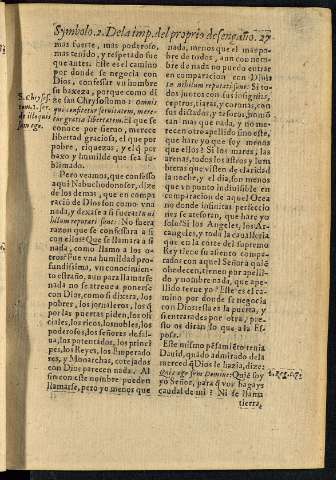 Symbolo.2. De la imp. del proprio desengaño. 27
mas fuerte, mas poderoso,
mas tenido, y respetado fue
que antes: Este es el camino
por donde se negocia con
Dios, confessar vn hombre
su baxeza, porque como di
ze san Chrysostomo: omnis
qui confitetur servitutem, mere-
tur gratiae libertatem. El que se
conoce por sieruo, merece
libertad graciosa, el que por
pobre, riquezas, y el q̃ por
baxo y humilde que sea su-
blimado.
S. Chrysost.
Pero veamos, que confesso
aqui Nabuchodonosor, dize
de los demas, que en compa-
racio de Dios son como vna
nada, y dexase a si
nihilum reputati sunt: No fuera
razon que se confessara a si
con ellos? Que se llamara a si
nada, como llamo a los o-
tros? Fue vna humildad pro-
fundissima, vn conocimien-
to estraño, aun para llamarse
nada no se atreue a ponerse
con Dios, como si dixera, los
pobres, los jornaleros, los q̃
por las puertas piden, los ofi-
ciales, los ricos, los nobles, los
poderosos, los señores de si
los potentados, los princi-
pes, los Reyes, los Emperado
res, y Monarchas, cotejados
con Dios parecen nada. Al
fin con este nombre pueden
llamarse, pero yo menos que
nada, menos que el mas po-
bre de todos, aun con nom-
bre de nada no puedo entrar
en comparacion con Dios:
in nihilum reputati sunt: Si to-
dos juntos con sus insignias,
ceptros, tiaras, y coronas, con
sus dictados, y tesoros, monta
tan mas que nada, y no me-
recen otro apellido sino este,
que hare yo que soy menos
que ellos? Si los mares, las
arenas, todos los astros y lum
breras que visten de claridad
la noche, y el dia, son menos
que vn ponto indiuisible en
comparacion de aquel Ocea
no donde infinitas perfeccio
nes se atesoran, que hare yo
solo? Si los Angeles, los Ar-
cangeles, y toda la caualleria
que en la corte del supremo
Rey tiene su asiento compa-
rados con aquel Señor a quie
obedecen, tienen por apelli-
do y nombre nada, que ape-
llido terne yo? Este es el ca-
mino por donde se negocia
con Dios: esta es la puerta, y
si entraredes por otra, pre-
sto os diran lo que a la Es-
posa.
Este mismo pẽsamiẽto tenia
Dauid, quãdo admirado de la
merced q̃ Dios le hazia, dize:
Quis ego sum Domine: Quiẽ soy
yo Señor, para q̃ vos hagays
caudal de mi? Ni se llama
2. Reg. c. 7.
tierra,